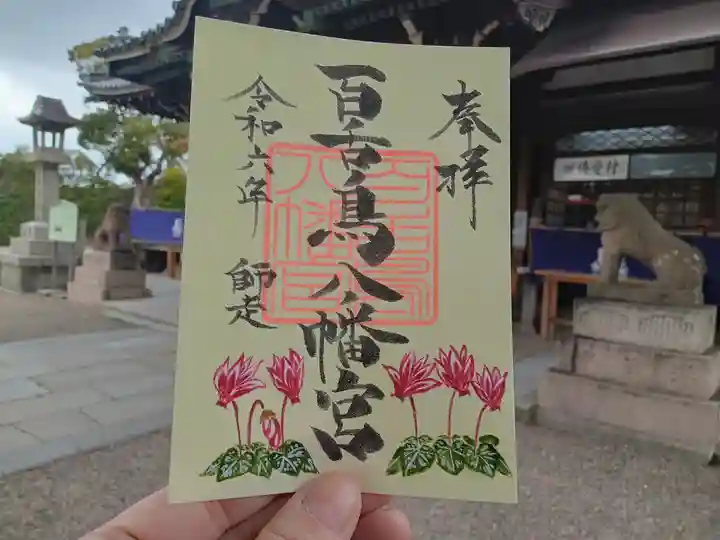 奉拝
百舌鳥八幡宮
令和六年 師走
百舌鳥八幡宮